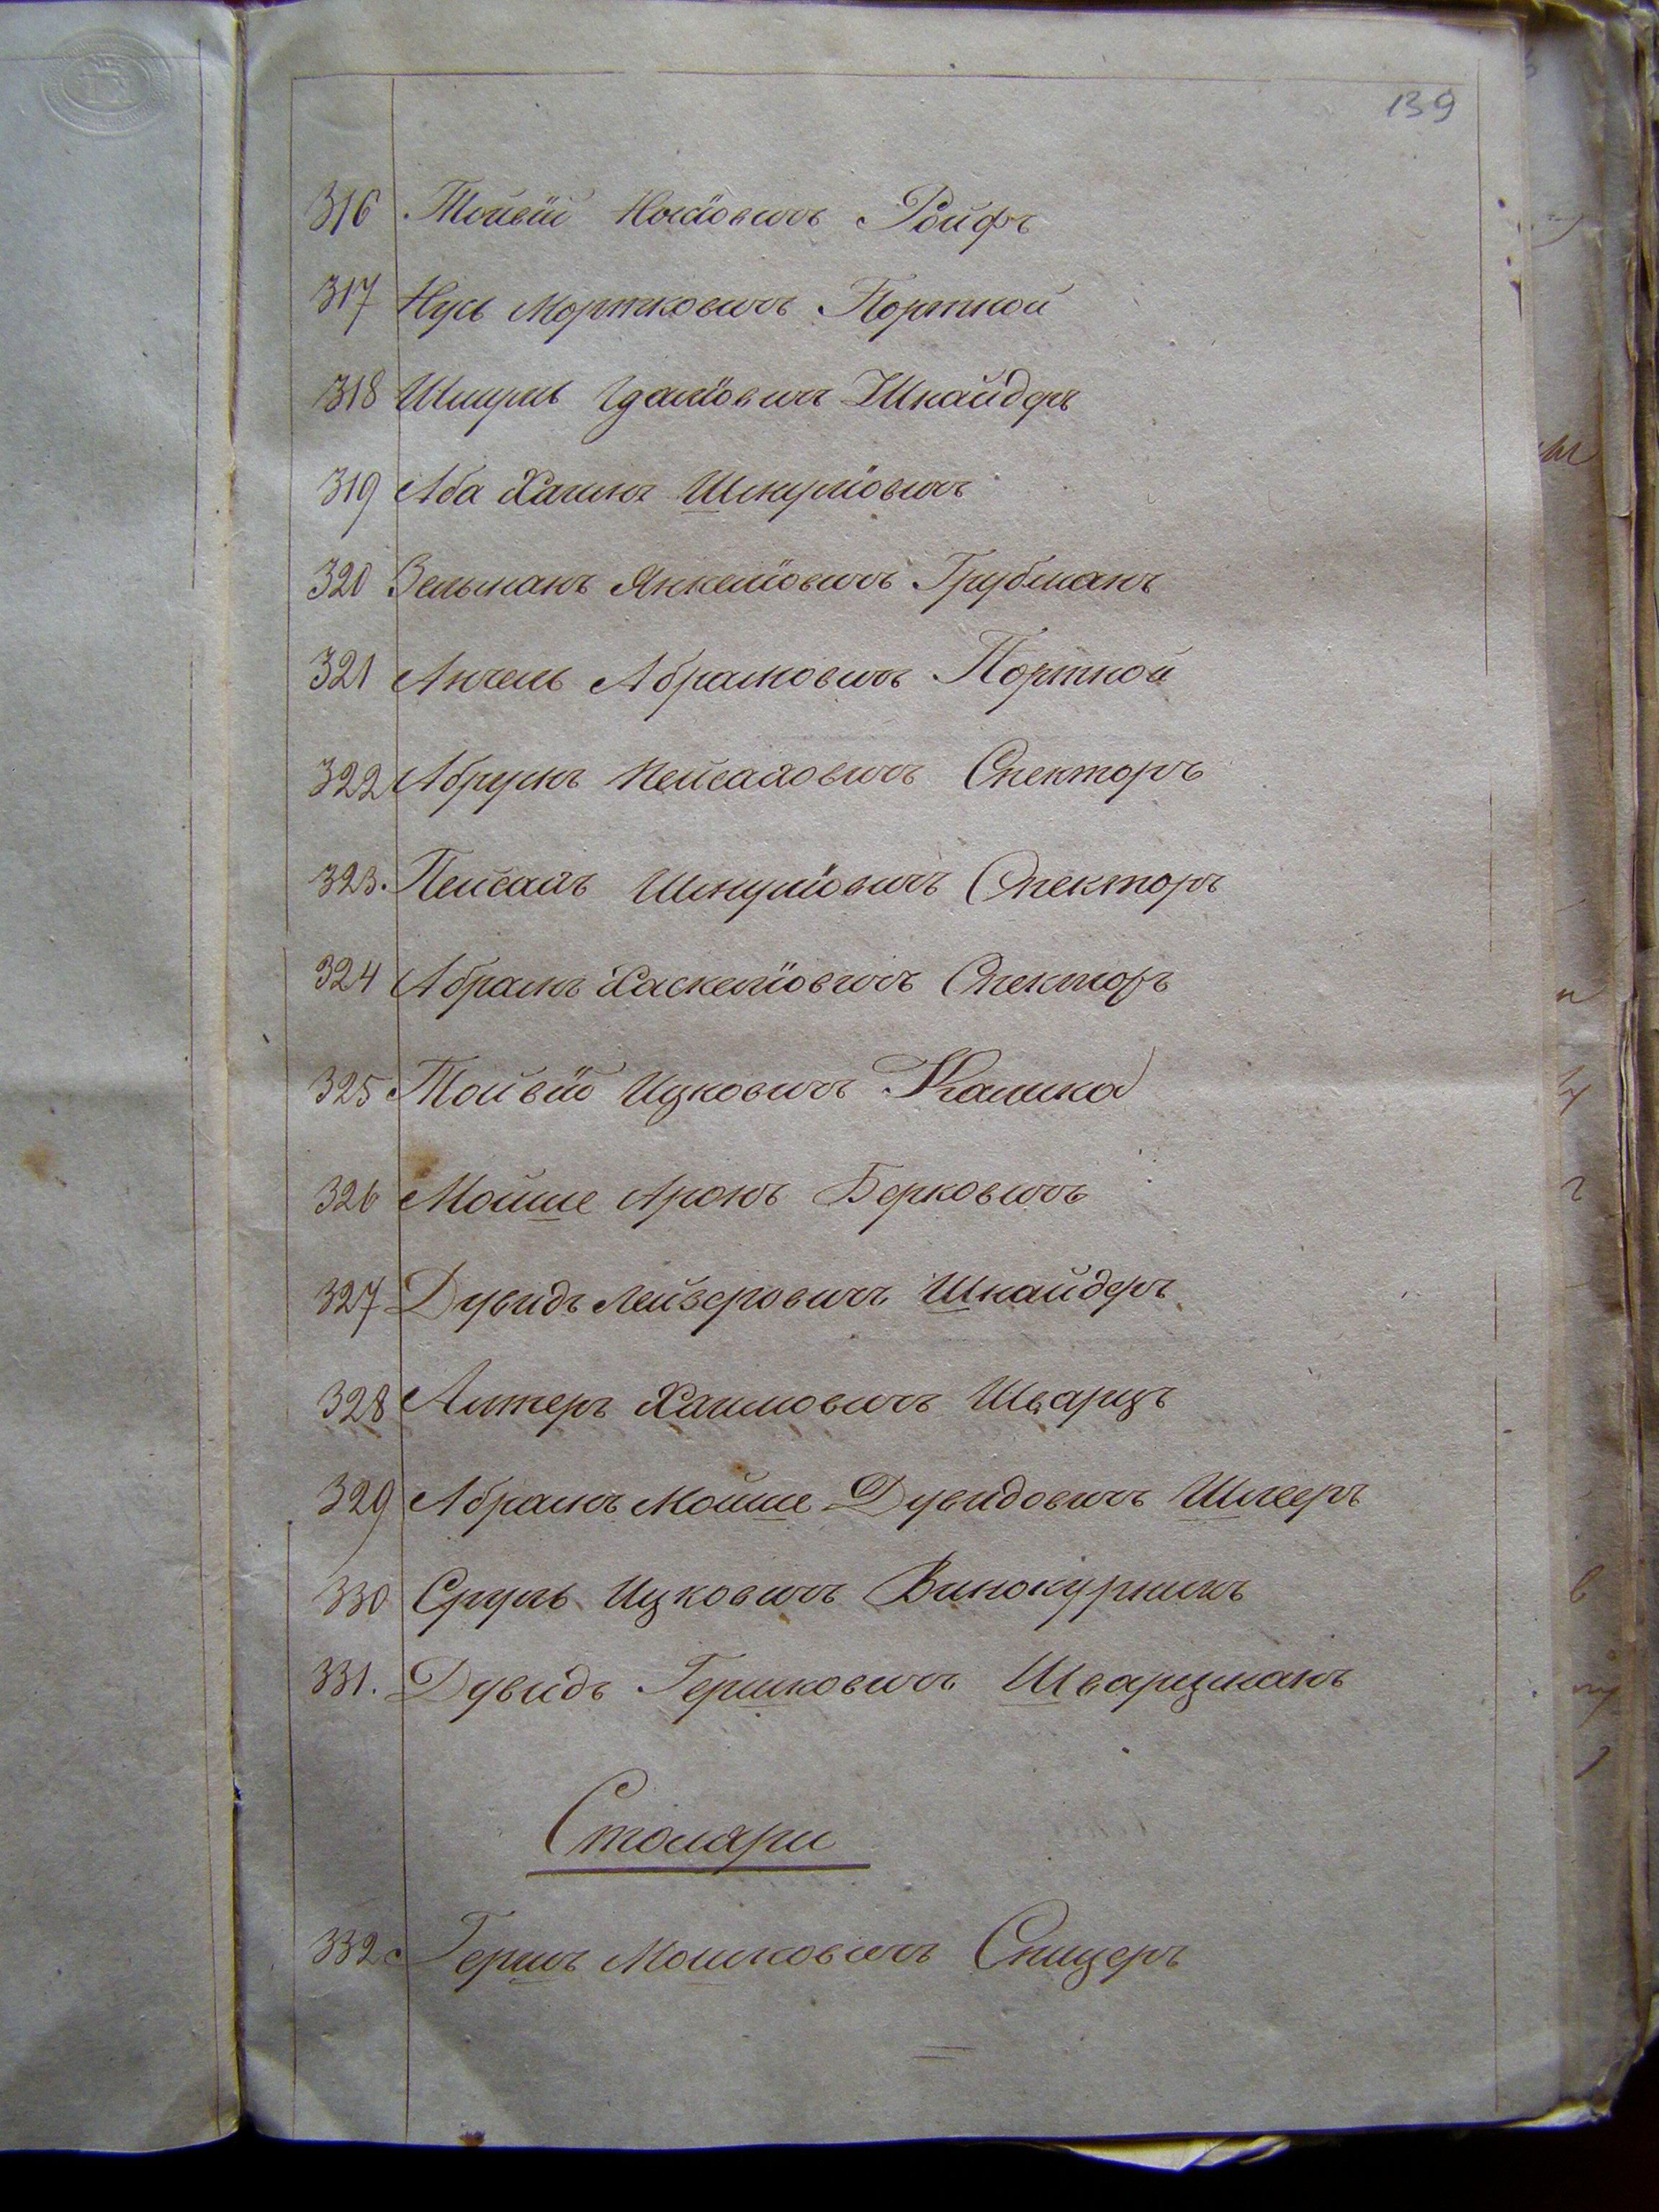 139
316 Тойвій Носіовичъ Ройфъ
317 Нусь Мортковичъ Портной
318 Шмуль Гдаліовичъ Шнайдеръ
319 Аба Хаимъ Шмуліовичъ
320 Зельманъ Янкеліовичъ Грубманъ
321 Анчель Абрамовичъ Портной
322 Абрумъ Пейсаховичъ Спекторъ
323. Пейсахъ Шмуліовичъ Спекторъ
324 Абрамъ Хаскеліовичъ Спекторъ
325 Тойвій Ицковичъ
326 Мойше Аронъ Берковичъ
327 Дувидъ Лейзеровичъ Шнайдеръ
328 Алтеръ Хаимовичъ Шварцъ
329 Абрамъ Мойше Дувидовичъ
330 Сруль Ицковичъ Винокурникъ
331. Дувидъ Гершковичъ Шварцманъ
Столяри
332 Гершъ Мошковичъ Сницеръ